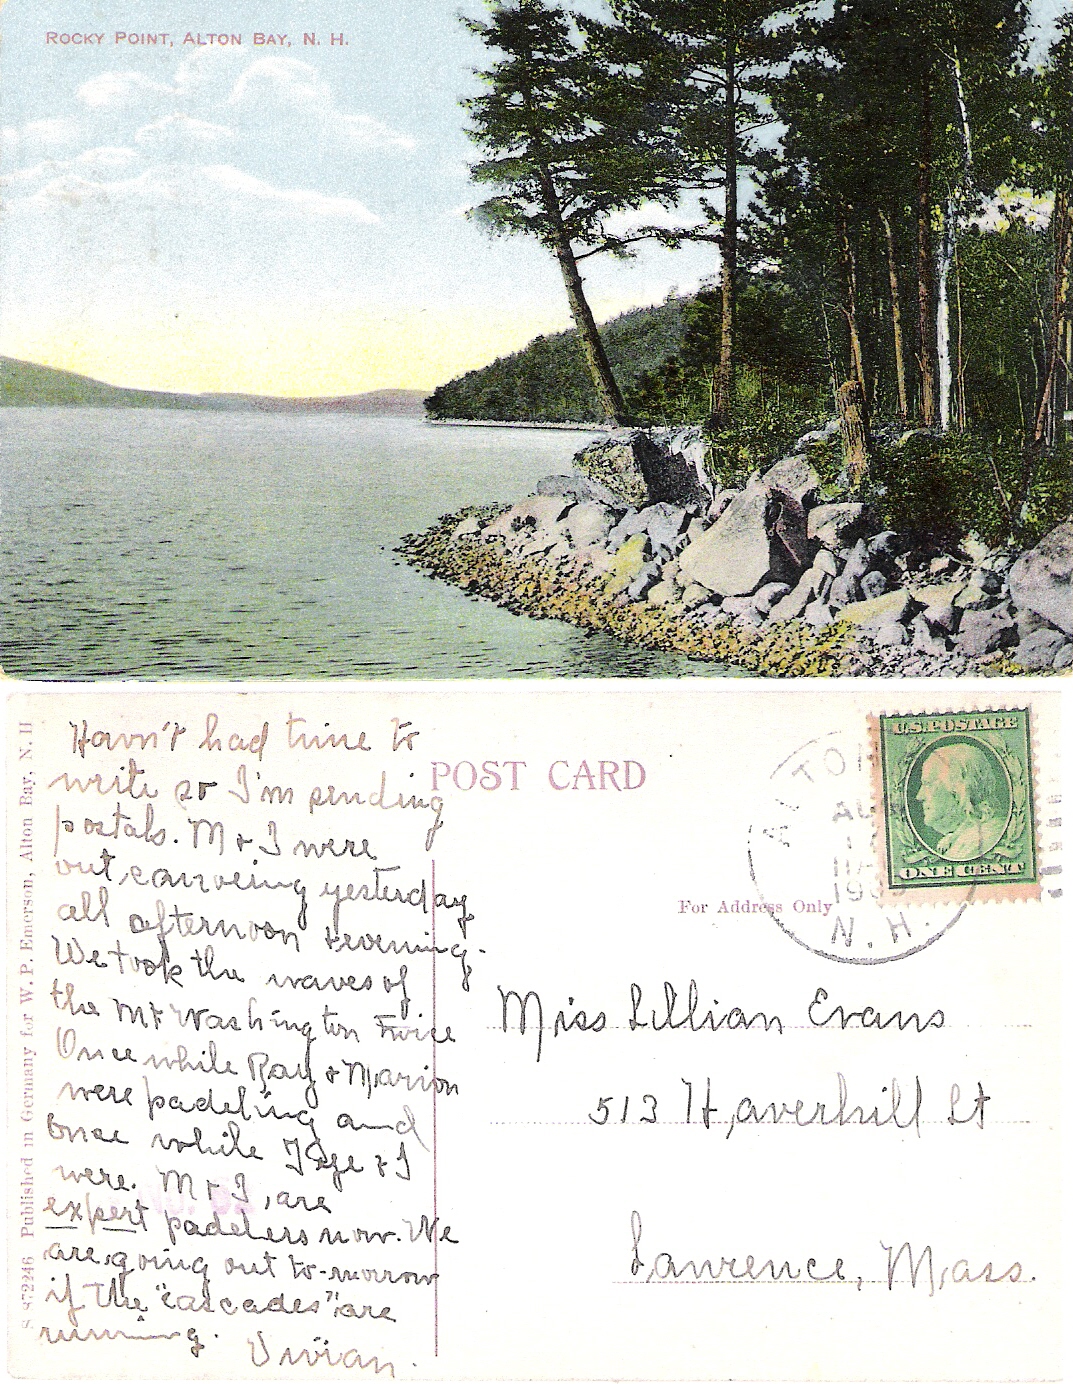 ROCKY POINT, ALTON BAY, N. H.
Havn't had time to
write so I'm sending
postals. M & I were
out canoeing yesterday
all afternoon & evening.
We took the waves of
the Mt Washington twice
Once while Ray & Marion
were padeling and
once while & I
were. M & I are
expert padelers now. We
are going out to-morrow
if the "cascades" are
running.
Vivian.
POST CARD
For Address Only
ALTON
AUG
N. H.
U.S. POSTAGE
ONE CENT
Miss Lillian Evans
513 Haverhill St
Lawrence, Mass.
S 72246 Published in Germany for W. P. Emerson, Alton Bay, N. H